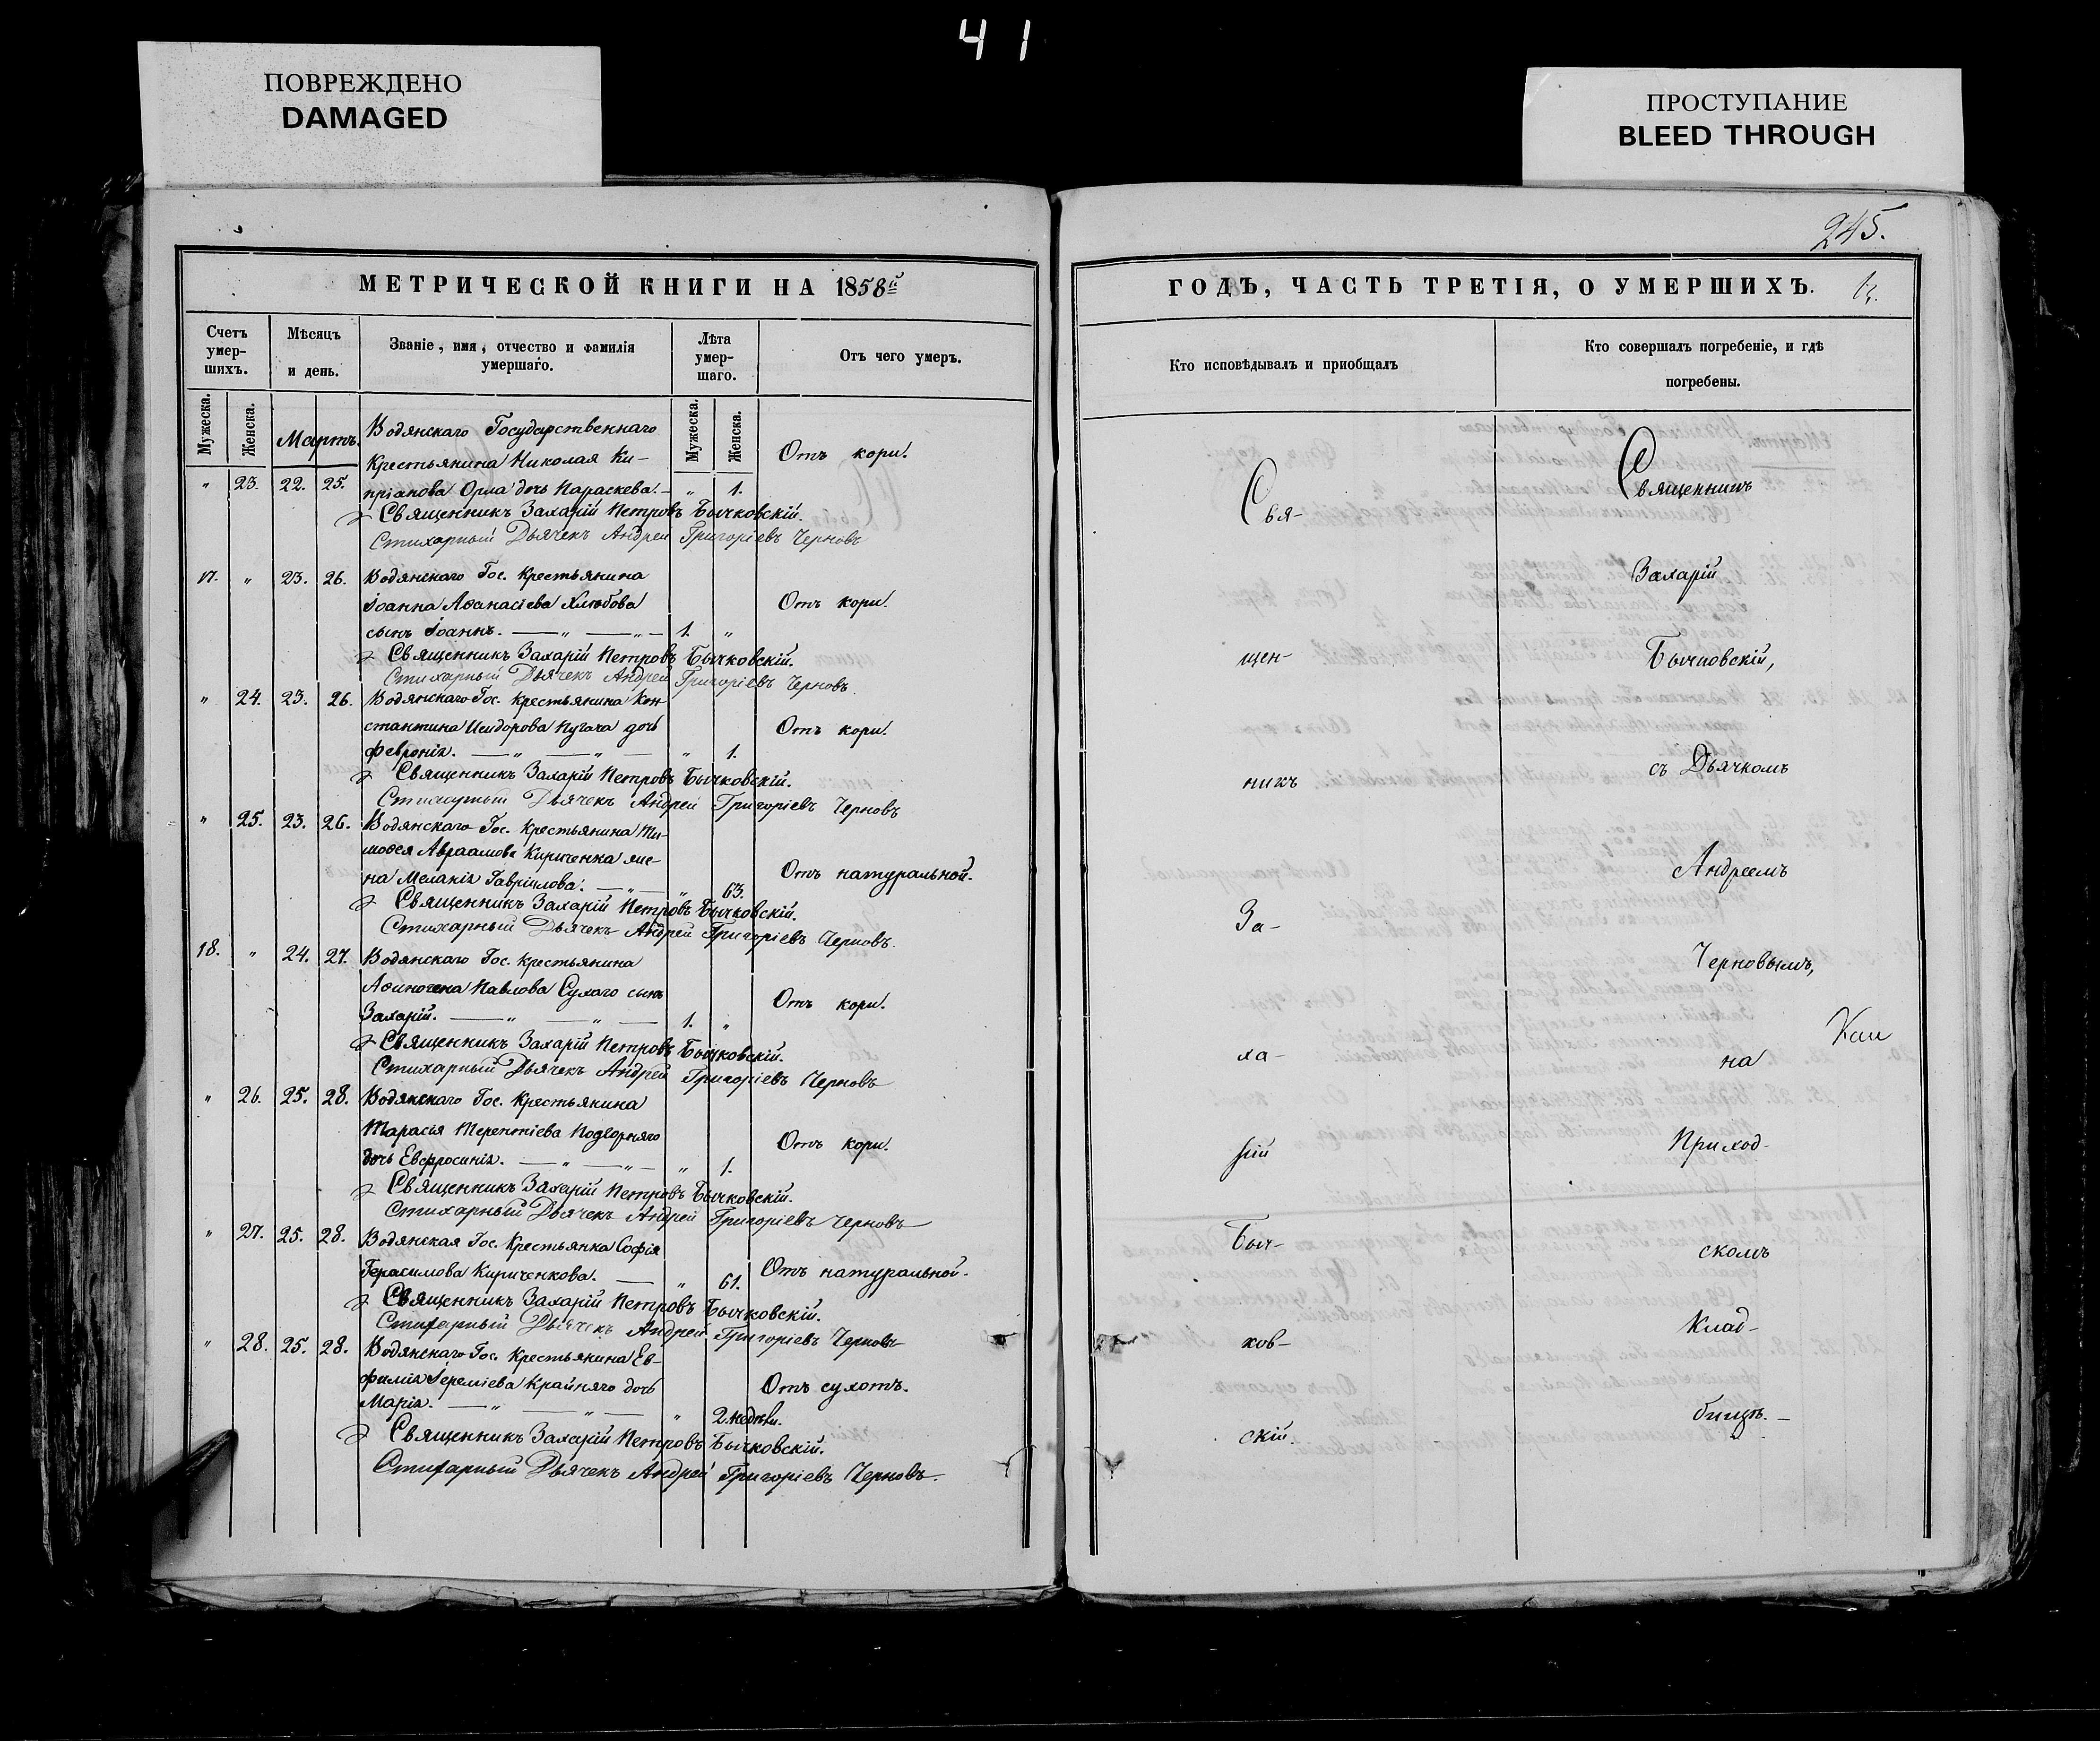 41
ПОВРЕЖДЕНО
DAMAGED
ПРОСТУПАНИЕ
BLEED THROUGH
МЕТРИЧЕСКОЙ КНИГИ НА 1858й
Счетъ умер-шихъ.
Мѣсяцъ и день.
Званіе, имя, отчество и фамилія умершаго.
Лѣта умер-шаго.
Отъ чего умеръ.
Мужеска.
Женска.
Мартъ.
Мужеска.
Женска.
Водянскаго Государственнаго
Крестьянина Николая Ки-
Отъ кори.
" 23. 22. 25. пріанова Орла дочь Параскева. — " 1.
Священникъ Захарій Петровъ Бычковскій.
Стихарный Дьячекъ Андрей Григоріевъ Черновъ
17. " 23. 26. Водянскаго Гос. Крестьянина
Іоанна Аѳанасіева Хлѣбова Отъ кори.
сынъ Іоаннъ. — " — " — 1. "
Священникъ Захарій Петровъ Бычковскій.
Стихарный Дьячекъ Андрей Григоріевъ Черновъ
" 24. 23. 26. Водянскаго Гос. Крестьянина Кон-
стантина Исидорова Пугача дочь Отъ кори.
Февронія. — " — " — " 1.
Священникъ Захарій Петровъ Бычковскій.
Стихарный Дьячекъ Андрей Григоріевъ Черновъ
" 25. 23. 26. Водянскаго Гос. Крестьянина Ти-
моѳея Авраамова Кириченка же-
на Меланія Гавріилова. — " — " 63. Отъ натуральной.
Священникъ Захарій Петровъ Бычковскій.
Стихарный Дьячекъ Андрей Григоріевъ Черновъ.
18. " 24. 27. Водянскаго Гос. Крестьянина
Аѳиногена Павлова Сухаго сынъ Отъ кори.
Захарій. — " — " — 1. "
Священникъ Захарій Петровъ Бычковскій.
Стихарный Дьячекъ Андрей Григоріевъ Черновъ
" 26. 25. 28. Водянскаго Гос. Крестьянина
Тарасія Терентіева Подворняго Отъ кори.
дочь Евфросинія. — " — " — " 1.
Священникъ Захарій Петровъ Бычковскій.
Стихарный Дьячекъ Андрей Григоріевъ Черновъ
" 27. 25. 28. Водянская Гос. Крестьянка Софія
Герасимова Кириченкова. — " 61. Отъ натуральной.
Священникъ Захарій Петровъ Бычковскій.
Стихарный Дьячекъ Андрей Григоріевъ Черновъ
" 28. 25. 28. Водянскаго Гос. Крестьянина Ев-
фимія Іереміева Крайняго дочь Отъ сухотъ.
Марія. — " — " — " 2. недѣли.
Священникъ Захарій Петровъ Бычковскій.
Стихарный Дьячекъ Андрей Григоріевъ Черновъ.
245.
ГОДЪ, ЧАСТЬ ТРЕТІЯ, О УМЕРШИХЪ.
Кто исповѣдывалъ и приобщалъ
Кто совершалъ погребеніе, и гдѣ погребены.
Свя-
щен-
никъ
За-
ха-
рій
Быч-
ков-
скій.
Священникъ
Захарій
Бычковскій,
съ Дьячкомъ
Андреемъ
Черновымъ,
на
Приход-
скомъ
Клад-
бищѣ. —